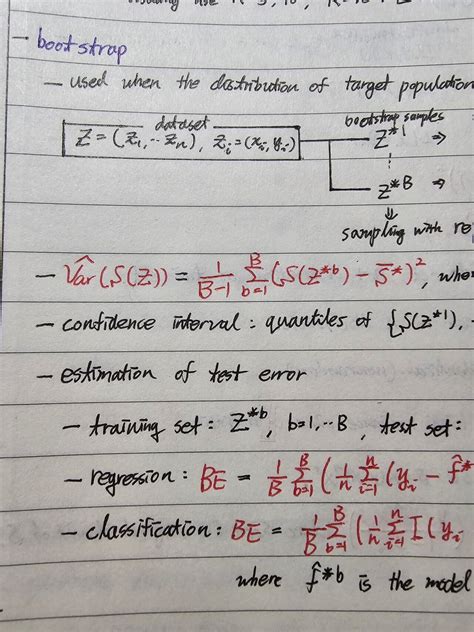 - bootstrap
- used when the distribution of target population
dataset
bootstrap samples
Z = (z₁, ⋯ zₙ), zᵢ = (xᵢ, yᵢ)
Z*¹ ⇒
⋮
Z*B ⇒
⇓
sampling with re
- V̂ar(S(Z)) = 1/(B-1) Σ_{b=1}^{B} (S(Z*b) - S̄*)², whe
- confidence interval : quantiles of {S(Z*¹),
- estimation of test error
- training set : Z*b, b=1,⋯B, test set:
- regression : BE = 1/B Σ_{b=1}^{B} (1/n Σ_{i=1}^{n} (yᵢ - f̂*
- classification : BE = 1/B Σ_{b=1}^{B} (1/n Σ_{i=1}^{n} I(yᵢ
where f̂*b is the model